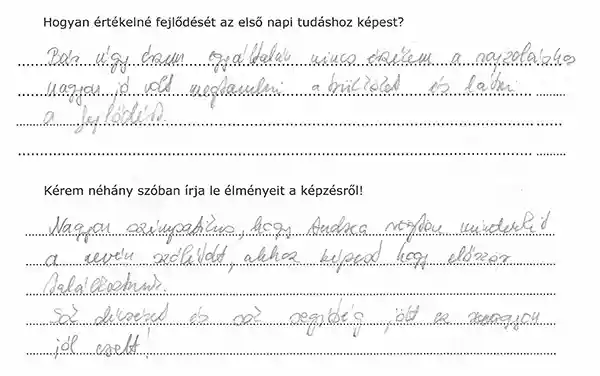 Hogyan értékelné fejlődését az első napi tudáshoz képest?
Bár úgy érzem egyáltalán nincs érzékem a rajzoláshoz
nagyon jó volt megtanulni a és látni
a fejlődést.
Kérem néhány szóban írja le élményeit a képzésről!
Nagyon szimpatikus, hogy Andrea rögtön mindenkit
a nevén szólított, ahhoz képest hogy először
találkoztunk.
Sok dicséret és sok segítség jött ez nagyon
jól esett!